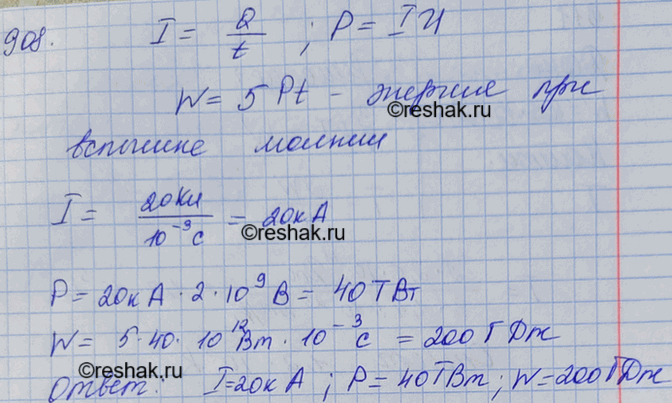 908. I = Q/t ; P = IU
W = 5Pt - энергия при
©reshak.ru
вспышке молнии
I = 20Кл/10⁻³с = 20кА
©reshak.ru
P = 20кА · 2 · 10⁹ В = 40ТВт
W = 5·40·10¹² Вт · 10⁻³ с = 200ГДж
©reshak.ru
Ответ: I=20кА ; P=40ТВт ; W=200ГДж